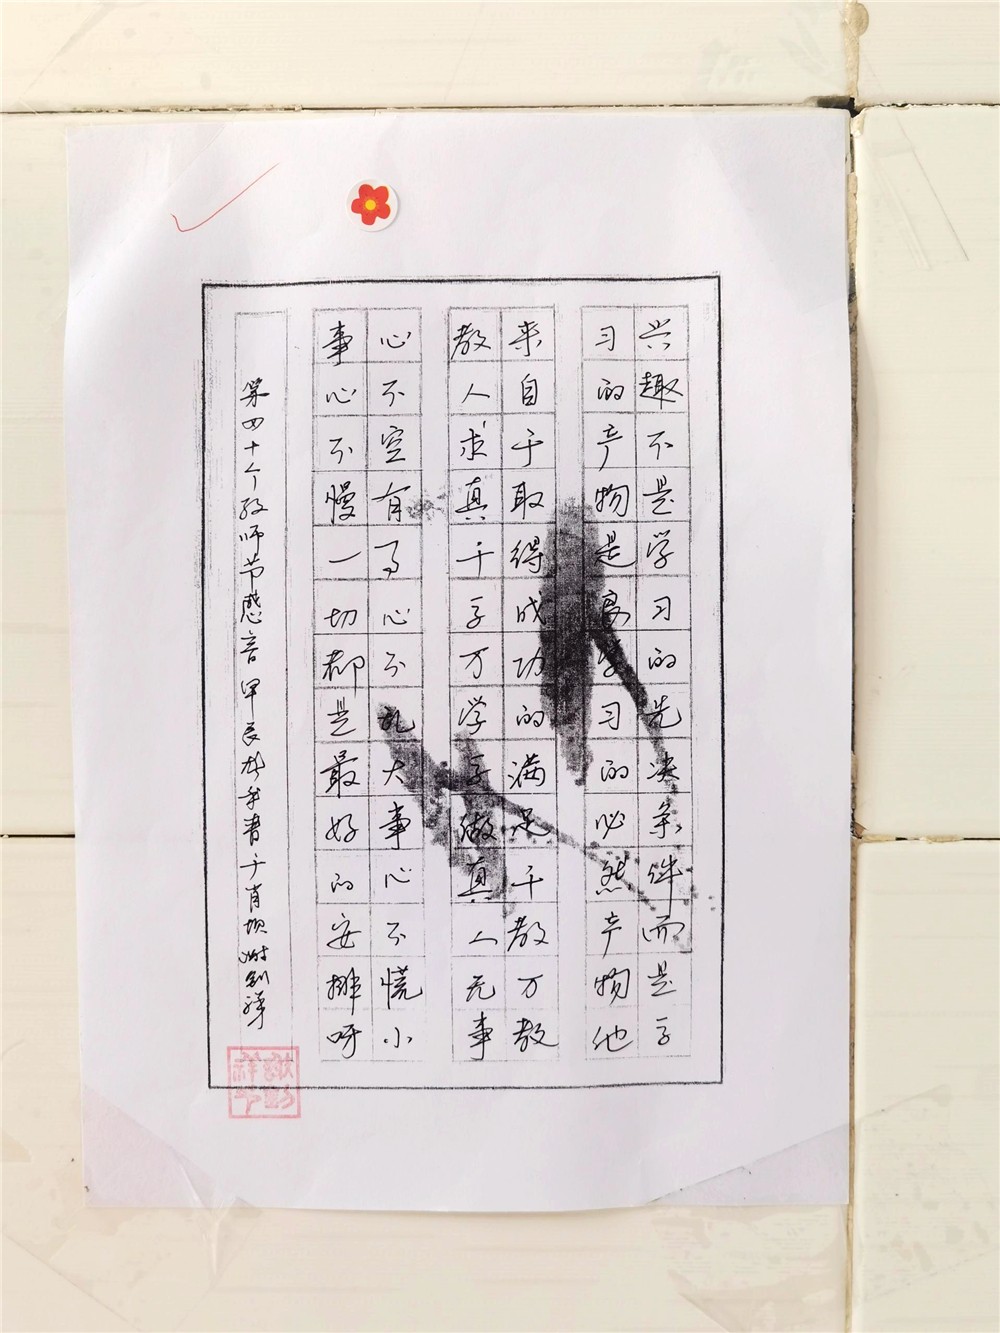 兴趣不是学习的先决条件而是学
习的产物是高学习的必然产物他
来自于取得成功的满足千教万教
教人求真千学万学学做真人无事
心不空有事心不乱大事心不慌小
事心不慢一切都是最好的安排呀
第四十个教师节感言甲辰龙年书于肖坝谢剑祥